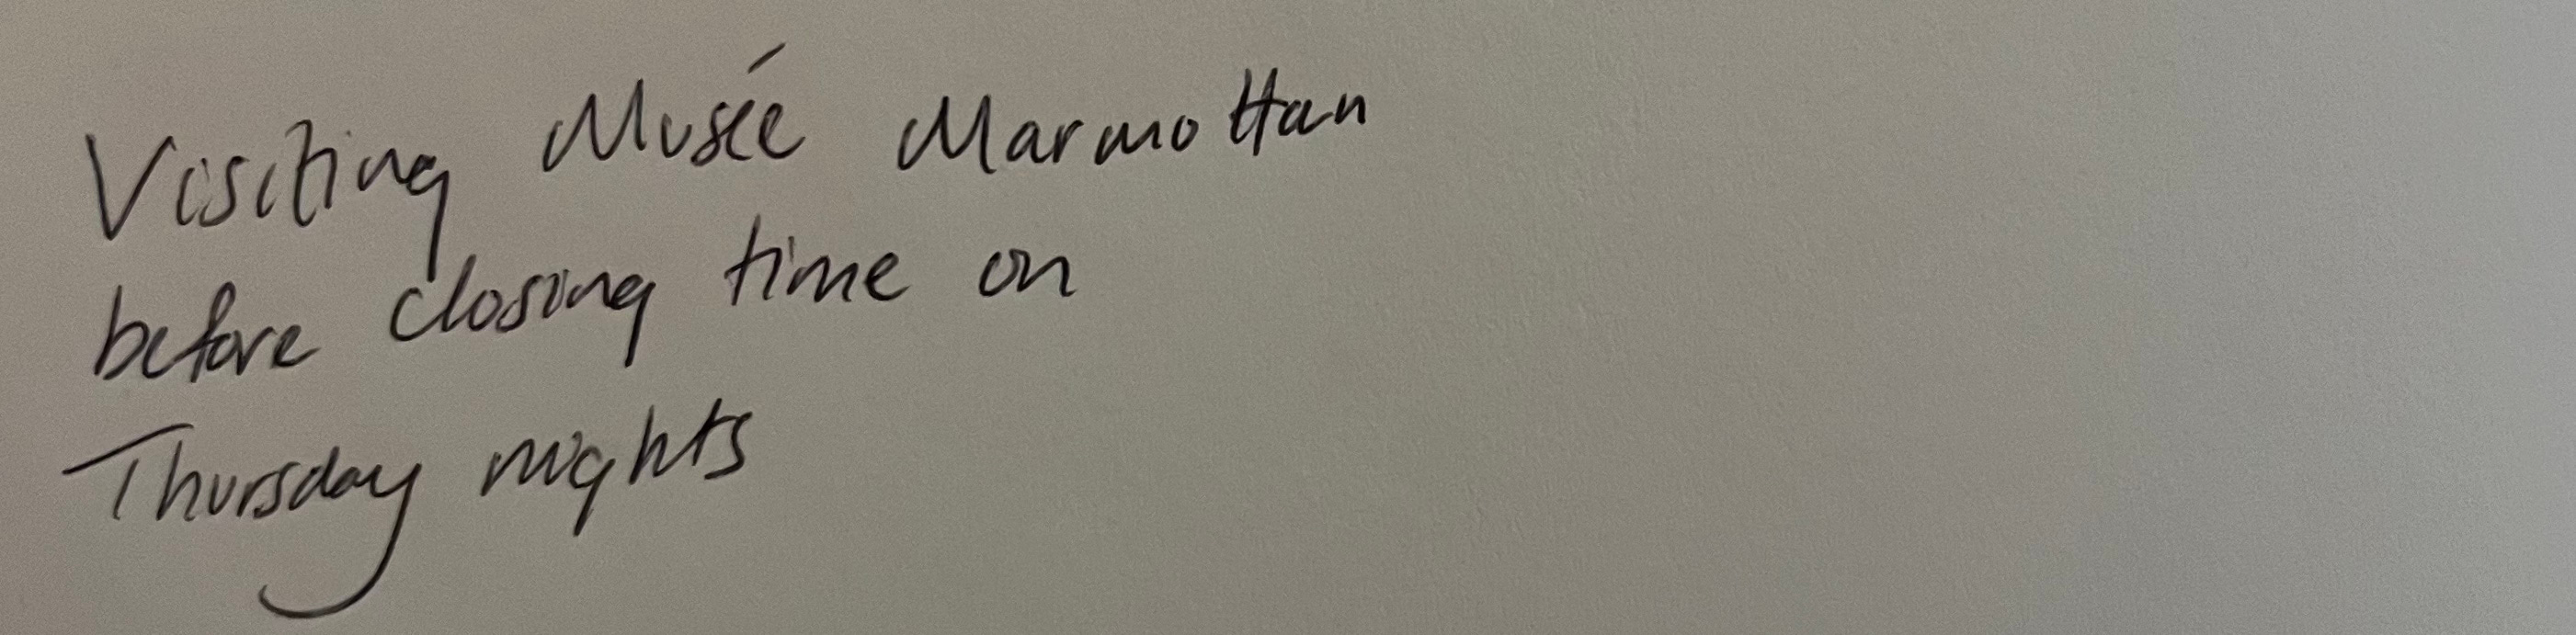 Visiting Musée Marmottan
before closing time on
Thursday nights